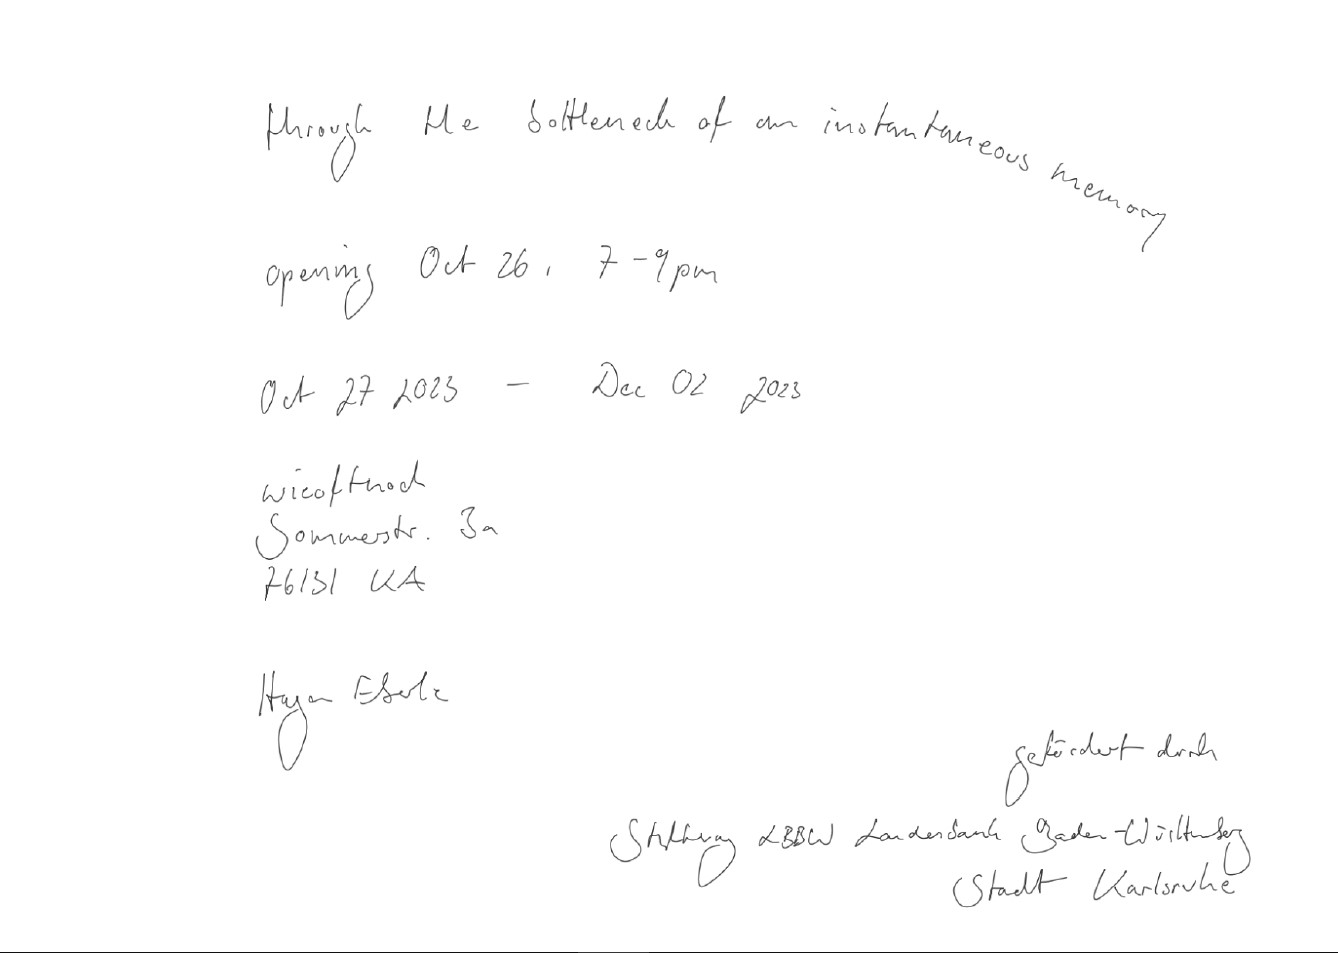 through the bottleneck of an instantaneous memory
opening Oct 26, 7-9pm
Oct 27 2023 - Dec 02 2023
wieoftnoch
Sommerstr. 3a
76131 KA
Hagen Eberle
gefördert durch
Stiftung LBBW Landesbank Baden-Württemberg
Stadt Karlsruhe